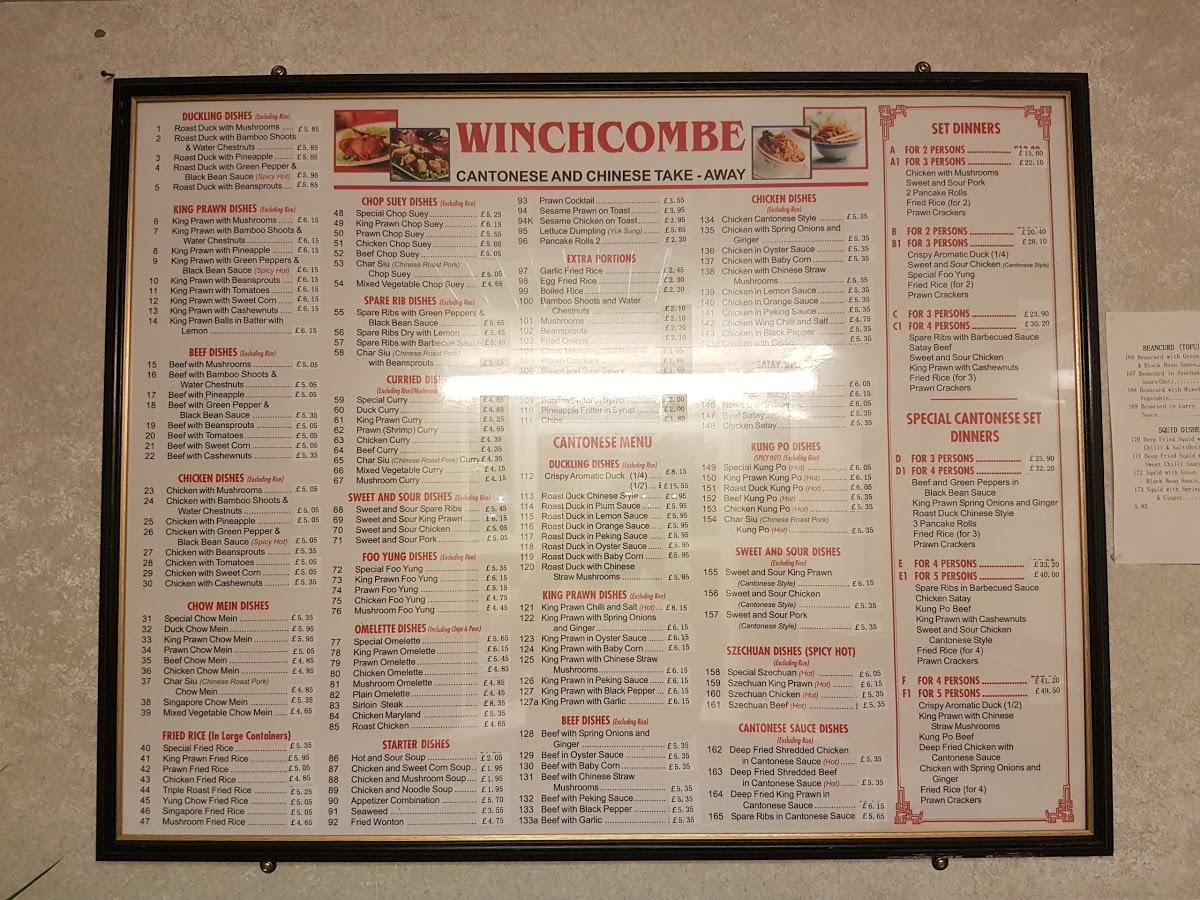 WINCHCOMBE
CANTONESE AND CHINESE TAKE - AWAY
DUCKLING DISHES (Excluding Rice)
1 Roast Duck with Mushrooms ..... £5.85
2 Roast Duck with Bamboo Shoots
& Water Chestnuts ..... £5.85
3 Roast Duck with Pineapple ..... £5.85
4 Roast Duck with Green Pepper &
Black Bean Sauce (Spicy Hot) £5.95
5 Roast Duck with Beansprouts .... £5.85
KING PRAWN DISHES (Excluding Rice)
6 King Prawn with Mushrooms ...... £6.15
7 King Prawn with Bamboo Shoots &
Water Chestnuts ..... £6.15
8 King Prawn with Pineapple ..... £6.15
9 King Prawn with Green Peppers &
Black Bean Sauce (Spicy Hot) £6.15
10 King Prawn with Beansprouts .... £6.15
11 King Prawn with Tomatoes ..... £6.15
12 King Prawn with Sweet Corn ..... £6.15
13 King Prawn with Cashewnuts ..... £6.15
14 King Prawn Balls in Batter with
Lemon ..... £6.15
BEEF DISHES (Excluding Rice)
15 Beef with Mushrooms ..... £5.05
16 Beef with Bamboo Shoots &
Water Chestnuts ..... £5.05
17 Beef with Pineapple ..... £5.05
18 Beef with Green Pepper &
Black Bean Sauce ..... £5.35
19 Beef with Beansprouts ..... £5.05
20 Beef with Tomatoes ..... £5.05
21 Beef with Sweet Corn ..... £5.05
22 Beef with Cashewnuts ..... £5.35
CHICKEN DISHES (Excluding Rice)
23 Chicken with Mushrooms ..... £5.05
24 Chicken with Bamboo Shoots &
Water Chestnuts ..... £5.05
25 Chicken with Pineapple ..... £5.05
26 Chicken with Green Pepper &
Black Bean Sauce (Spicy Hot) £5.05
27 Chicken with Beansprouts ..... £5.35
28 Chicken with Tomatoes ..... £5.05
29 Chicken with Sweet Corn ..... £5.05
30 Chicken with Cashewnuts ..... £5.35
CHOW MEIN DISHES
31 Special Chow Mein ..... £5.35
32 Duck Chow Mein ..... £5.95
33 King Prawn Chow Mein ..... £5.95
34 Prawn Chow Mein ..... £5.05
35 Beef Chow Mein ..... £4.85
36 Chicken Chow Mein ..... £4.85
37 Char Siu (Chinese Roast Pork)
Chow Mein ..... £4.85
38 Singapore Chow Mein ..... £5.35
39 Mixed Vegetable Chow Mein .... £4.65
FRIED RICE (In Large Containers)
40 Special Fried Rice ..... £5.35
41 King Prawn Fried Rice ..... £5.95
42 Prawn Fried Rice ..... £5.05
43 Chicken Fried Rice ..... £4.85
44 Triple Roast Fried Rice ..... £5.25
45 Yung Chow Fried Rice ..... £5.05
46 Singapore Fried Rice ..... £5.05
47 Mushroom Fried Rice ..... £4.65
CHOP SUEY DISHES (Excluding Rice)
48 Special Chop Suey ..... £5.25
49 King Prawn Chop Suey ..... £6.15
50 Prawn Chop Suey ..... £5.55
51 Chicken Chop Suey ..... £5.05
52 Beef Chop Suey ..... £5.05
53 Char Siu (Chinese Roast Pork)
Chop Suey ..... £5.05
54 Mixed Vegetable Chop Suey .... £4.65
SPARE RIB DISHES (Excluding Rice)
55 Spare Ribs with Green Peppers &
Black Bean Sauce ..... £5.65
56 Spare Ribs Dry with Lemon .. £5.45
57 Spare Ribs with Barbecue Sauce £5.45
58 Char Siu (Chinese Roast Pork)
with Beansprouts ..... £5.15
CURRIED DISHES
(Excluding Rice)
59 Special Curry ..... £4.85
60 Duck Curry ..... £4.85
61 King Prawn Curry ..... £5.25
62 Prawn (Shrimp) Curry ..... £4.65
63 Chicken Curry ..... £4.35
64 Beef Curry ..... £4.35
65 Char Siu (Chinese Roast Pork) Curry £4.35
66 Mixed Vegetable Curry ..... £4.15
67 Mushroom Curry ..... £4.15
SWEET AND SOUR DISHES (Excluding Rice)
68 Sweet and Sour Spare Ribs ..... £5.45
69 Sweet and Sour King Prawn ... £6.15
70 Sweet and Sour Chicken ..... £5.05
71 Sweet and Sour Pork ..... £5.05
FOO YUNG DISHES (Excluding Rice)
72 Special Foo Yung ..... £5.35
73 King Prawn Foo Yung ..... £6.15
74 Prawn Foo Yung ..... £5.15
75 Chicken Foo Yung ..... £4.75
76 Mushroom Foo Yung ..... £4.45
OMELETTE DISHES (Including Chips & Peas)
77 Special Omelette ..... £5.65
78 King Prawn Omelette ..... £6.15
79 Prawn Omelette ..... £5.45
80 Chicken Omelette ..... £4.85
81 Mushroom Omelette ..... £4.85
82 Plain Omelette ..... £4.45
83 Sirloin Steak ..... £8.35
84 Chicken Maryland ..... £5.35
85 Roast Chicken ..... £4.65
STARTER DISHES
86 Hot and Sour Soup ..... £2.05
87 Chicken and Sweet Corn Soup .. £1.95
88 Chicken and Mushroom Soup .... £1.95
89 Chicken and Noodle Soup ..... £1.95
90 Appetizer Combination ..... £5.70
91 Seaweed ..... £3.55
92 Fried Wonton ..... £4.75
93 Prawn Cocktail ..... £3.55
94 Sesame Prawn on Toast ..... £3.95
94K Sesame Chicken on Toast ..... £3.95
95 Lettuce Dumpling (Yuk Sung) .... £5.65
96 Pancake Rolls 2 ..... £2.20
EXTRA PORTIONS
97 Garlic Fried Rice ..... £2.45
98 Egg Fried Rice ..... £2.30
99 Boiled Rice ..... £2.20
100 Bamboo Shoots and Water
Chestnuts ..... £2.10
101 Mushrooms ..... £2.10
102 Beansprouts ..... £2.70
103 Fried Onions ..... £2.10
104 Chow Mein £3.05
105 Prawn Crackers
106 Sweet and Sour Sauce
109 Banana Fritter in Syrup ..... £2.00
110 Pineapple Fritter in Syrup ..... £2.00
111 Chips ..... £1.80
CANTONESE MENU
DUCKLING DISHES (Excluding Rice)
112 Crispy Aromatic Duck (1/4) .... £8.15
(1/2) ... £15.55
113 Roast Duck Chinese Style
114 Roast Duck in Plum Sauce ..... £5.95
115 Roast Duck in Lemon Sauce ... £5.95
116 Roast Duck in Orange Sauce ... £5.95
117 Roast Duck in Peking Sauce .... £5.95
118 Roast Duck in Oyster Sauce .... £5.95
119 Roast Duck with Baby Corn ..... £5.95
120 Roast Duck with Chinese
Straw Mushrooms ..... £5.95
KING PRAWN DISHES (Excluding Rice)
121 King Prawn Chilli and Salt (Hot) ... £6.15
122 King Prawn with Spring Onions
and Ginger ..... £6.15
123 King Prawn in Oyster Sauce ..... £6.15
124 King Prawn with Baby Corn ..... £6.15
125 King Prawn with Chinese Straw
Mushrooms ..... £6.15
126 King Prawn in Peking Sauce .... £6.15
127 King Prawn with Black Pepper ... £6.15
127a King Prawn with Garlic ..... £6.15
BEEF DISHES (Excluding Rice)
128 Beef with Spring Onions and
Ginger ..... £5.35
129 Beef in Oyster Sauce ..... £5.35
130 Beef with Baby Corn ..... £5.35
131 Beef with Chinese Straw
Mushrooms ..... £5.35
132 Beef with Peking Sauce ..... £5.35
133 Beef with Black Pepper ..... £5.35
133a Beef with Garlic ..... £5.35
CHICKEN DISHES
(Excluding Rice)
134 Chicken Cantonese Style ..... £5.35
135 Chicken with Spring Onions and
Ginger ..... £5.35
136 Chicken in Oyster Sauce ..... £5.35
137 Chicken with Baby Corn ..... £5.35
138 Chicken with Chinese Straw
Mushrooms ..... £5.35
139 Chicken in Lemon Sauce ..... £5.35
140 Chicken in Orange Sauce ..... £5.35
141 Chicken in Peking Sauce ..... £5.35
142 Chicken Wing Chilli and Salt ..... £4.75
143 Chicken in Black Pepper ..... £5.35
143a Chicken with Garlic
SATAY
£6.05
£6.15
146 £5.35
147 Beef Satay ..... £5.35
148 Chicken Satay ..... £5.35
KUNG PO DISHES
(SPICY HOT) (Excluding Rice)
149 Special Kung Po (Hot) ..... £6.05
150 King Prawn Kung Po (Hot) ..... £6.15
151 Roast Duck Kung Po (Hot) ..... £6.05
152 Beef Kung Po (Hot) ..... £5.35
153 Chicken Kung Po (Hot) ..... £5.35
154 Char Siu (Chinese Roast Pork)
Kung Po (Hot) ..... £5.35
SWEET AND SOUR DISHES
(Excluding Rice)
155 Sweet and Sour King Prawn
(Cantonese Style) ..... £6.15
156 Sweet and Sour Chicken
(Cantonese Style) ..... £5.35
157 Sweet and Sour Pork
(Cantonese Style) ..... £5.35
SZECHUAN DISHES (SPICY HOT)
(Excluding Rice)
158 Special Szechuan (Hot) ..... £6.05
159 Szechuan King Prawn (Hot) .... £6.15
160 Szechuan Chicken (Hot) ..... £5.35
161 Szechuan Beef (Hot) ..... £5.35
CANTONESE SAUCE DISHES
(Excluding Rice)
162 Deep Fried Shredded Chicken
in Cantonese Sauce (Hot) ..... £5.35
163 Deep Fried Shredded Beef
in Cantonese Sauce (Hot) ..... £5.35
164 Deep Fried King Prawn in
Cantonese Sauce ..... £6.15
165 Spare Ribs in Cantonese Sauce £5.65
SET DINNERS
A FOR 2 PERSONS ..... £15.60
A1 FOR 3 PERSONS ..... £22.10
Chicken with Mushrooms
Sweet and Sour Pork
2 Pancake Rolls
Fried Rice (for 2)
Prawn Crackers
B FOR 2 PERSONS ..... £20.40
B1 FOR 3 PERSONS ..... £28.10
Crispy Aromatic Duck (1/4)
Sweet and Sour Chicken (Cantonese Style)
Special Foo Yung
Fried Rice (for 2)
Prawn Crackers
C FOR 3 PERSONS ..... £23.90
C1 FOR 4 PERSONS ..... £30.20
Spare Ribs with Barbecued Sauce
Satay Beef
Sweet and Sour Chicken
King Prawn with Cashewnuts
Fried Rice (for 3)
Prawn Crackers
SPECIAL CANTONESE SET
DINNERS
D FOR 3 PERSONS ..... £25.90
D1 FOR 4 PERSONS ..... £32.20
Beef and Green Peppers in
Black Bean Sauce
King Prawn Spring Onions and Ginger
Roast Duck Chinese Style
3 Pancake Rolls
Fried Rice (for 3)
Prawn Crackers
E FOR 4 PERSONS ..... £33.20
E1 FOR 5 PERSONS ..... £40.00
Spare Ribs in Barbecued Sauce
Chicken Satay
Kung Po Beef
King Prawn with Cashewnuts
Sweet and Sour Chicken
Cantonese Style
Fried Rice (for 4)
Prawn Crackers
F FOR 4 PERSONS ..... £41.20
F1 FOR 5 PERSONS ..... £49.50
Crispy Aromatic Duck (1/2)
King Prawn with Chinese
Straw Mushrooms
Kung Po Beef
Deep Fried Chicken with
Cantonese Sauce
Chicken with Spring Onions and
Ginger
Fried Rice (for 4)
Prawn Crackers
BEANCURD (TOFU)
166 Beancurd with Green
& Black Bean Sauce
167 Beancurd in Szechuan
Sauce(Hot)
168 Beancurd with Mixed
Vegetable
169 Beancurd in Curry
Sauce
SQUID DISHE
170 Deep Fried Squid w
Chilli & Salt(Hot)
171 Deep Fried Squid w
Sweet Chilli Sauce
172 Squid with Green
Black Bean Sauce
173 Squid with Sprin
& Ginger
5.85